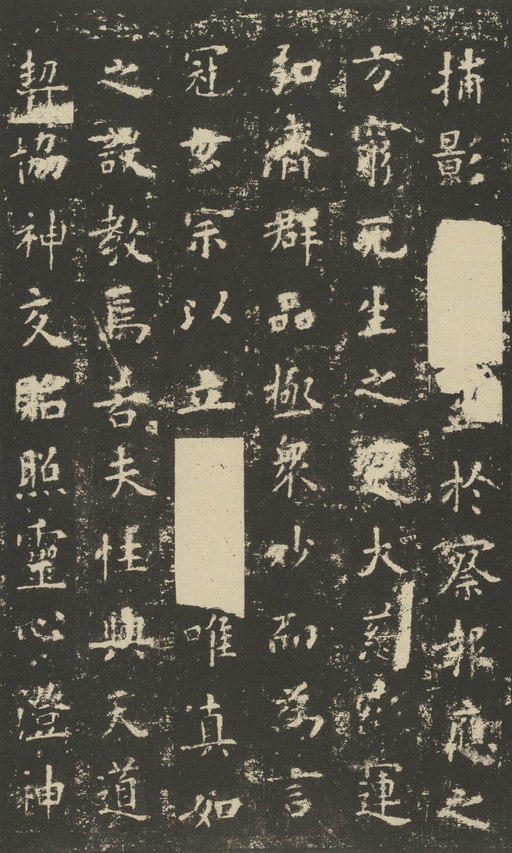 捕影至於察報應之
方窮死生之變大慈運
弘濟群品極衆妙而為言
冠玄宗以立唯真如
之設教焉若夫性與天道
契協神交昭照靈心澄神